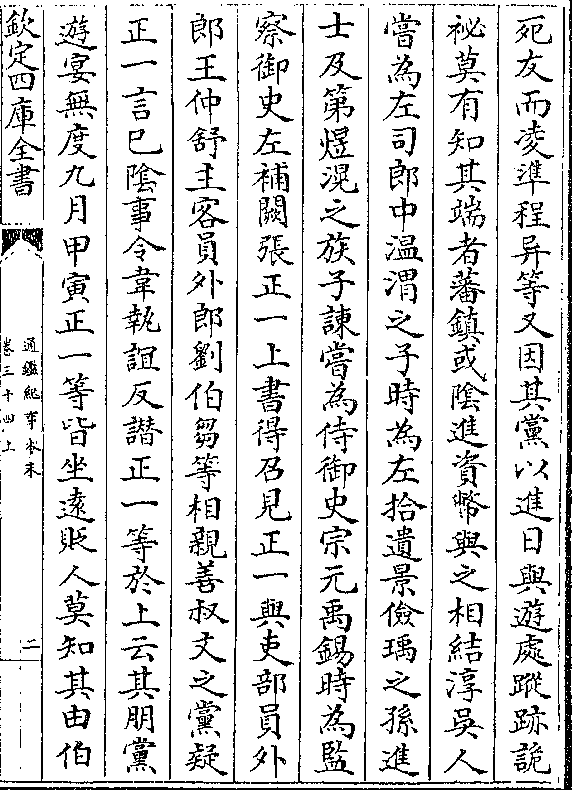 死友而凌準程异等又因其黨以進日與遊處蹤跡詭
祕莫有知其端者藩鎮或陰進資幣與之相結淳吳人
嘗為左司郎中温渭之子時為左拾遺景儉瑀之孫進
士及第煜滉之族子諫嘗為侍御史宗元禹錫時為監
察御史左補闕張正一上書得召見正一與吏部員外
郎王仲舒主客員外郎劉伯芻等相親善叔文之黨疑
正一言已陰事令韋執誼反譖正一等於上云其朋黨
遊宴無度九月甲寅正一等皆坐遠貶人莫知其由伯
欽定四庫全書
通鑑紀事本末
卷三十四上
二